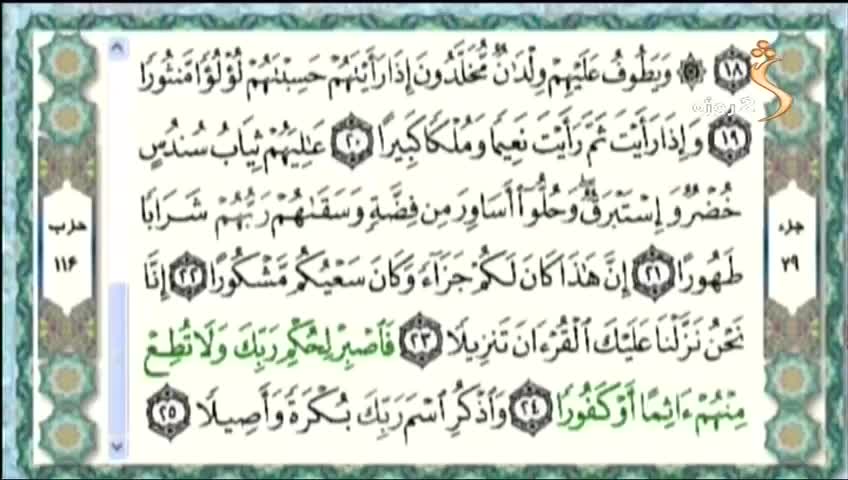 ﴿١٨﴾ ۞ وَيَطُوفُ عَلَيْهِمْ وِلْدَانٌ مُّخَلَّدُونَ إِذَا رَأَيْتَهُمْ حَسِبْتَهُمْ لُؤْلُؤًا مَّنثُورًا
﴿١٩﴾ وَإِذَا رَأَيْتَ ثَمَّ رَأَيْتَ نَعِيمًا وَمُلْكًا كَبِيرًا ﴿٢٠﴾ عَالِيَهُمْ ثِيَابُ سُندُسٍ
خُضْرٌ وَإِسْتَبْرَقٌ ۖ وَحُلُّوا أَسَاوِرَ مِن فِضَّةٍ وَسَقَاهُمْ رَبُّهُمْ شَرَابًا
طَهُورًا ﴿٢١﴾ إِنَّ هَٰذَا كَانَ لَكُمْ جَزَاءً وَكَانَ سَعْيُكُم مَّشْكُورًا ﴿٢٢﴾ إِنَّا
نَحْنُ نَزَّلْنَا عَلَيْكَ الْقُرْءَانَ تَنزِيلًا ﴿٢٣﴾ فَاصْبِرْ لِحُكْمِ رَبِّكَ وَلَا تُطِعْ
مِنْهُمْ ءَاثِمًا أَوْ كَفُورًا ﴿٢٤﴾ وَاذْكُرِ اسْمَ رَبِّكَ بُكْرَةً وَأَصِيلًا ﴿٢٥﴾
جزء
٢٩
حزب
١١٦